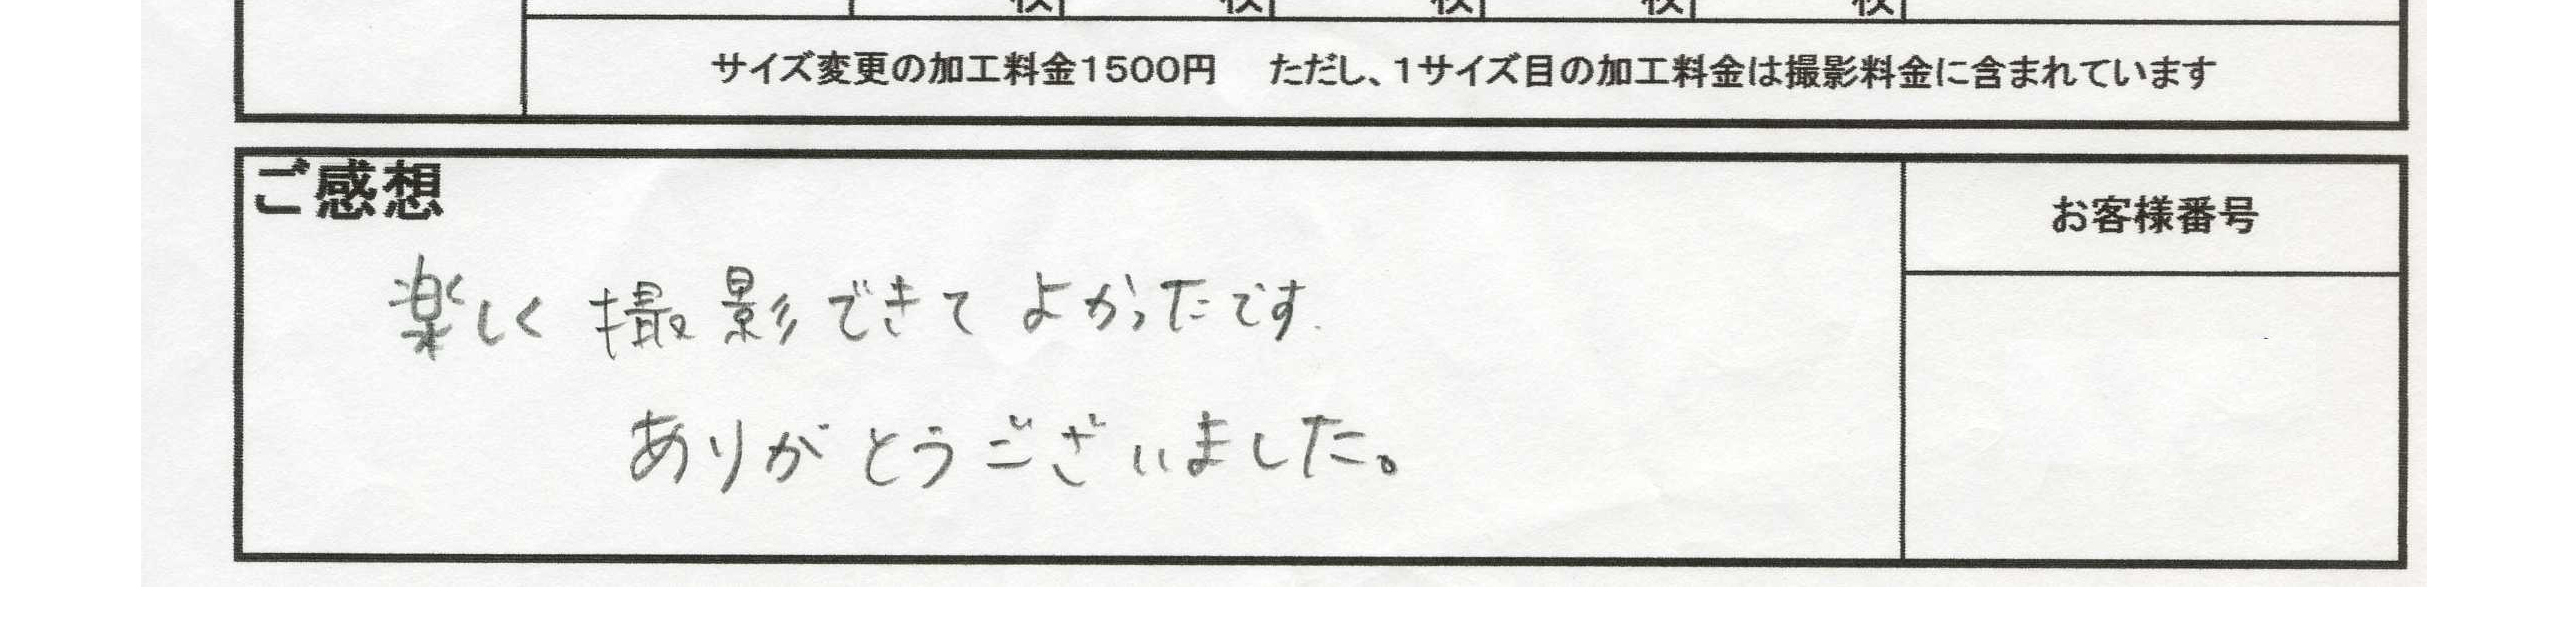 枚 枚 枚 枚 枚
サイズ変更の加工料金1500円 ただし、1サイズ目の加工料金は撮影料金に含まれています
ご感想
お客様番号
楽しく撮影できてよかったです.
ありがとうございました。